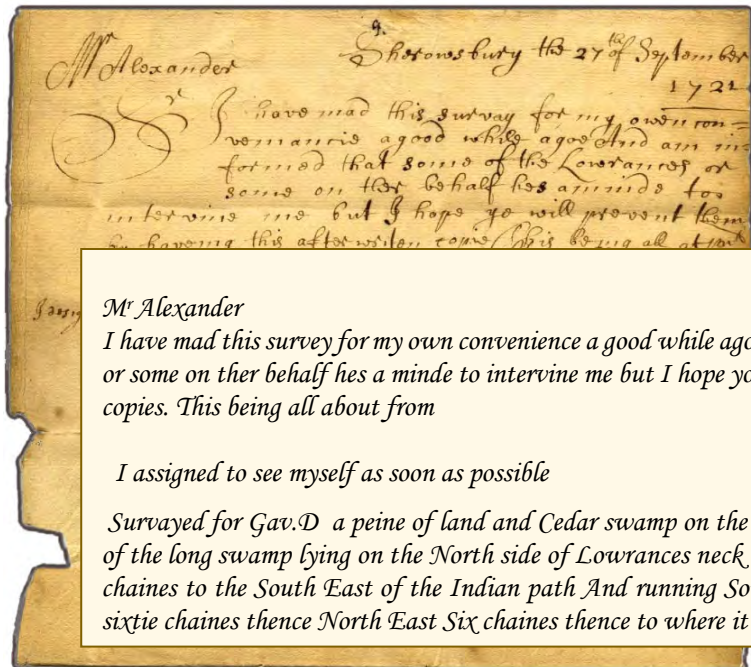 Mr Alexander
Sherowsbury the 27th of September
1721
Sr I have mad this survay for my owen con=
veniancie agood while agoe And am in=
formed that some of the Lowrances or
some on ther behalf hes aminde too
intervine me but I hope ye will prevent them
by haveing this after writen copie This being all at
Mr Alexander
I have mad this survey for my own convenience a good while ago
or some on ther behalf hes a minde to intervine me but I hope yo
copies. This being all about from
I assigned to see myself as soon as possible
Survayed for Gav.D a peine of land and Cedar swamp on the
of the long swamp lying on the North side of Lowrances neck
chaines to the South East of the Indian path And running So
sixtie chaines thence North East Six chaines thence to where it